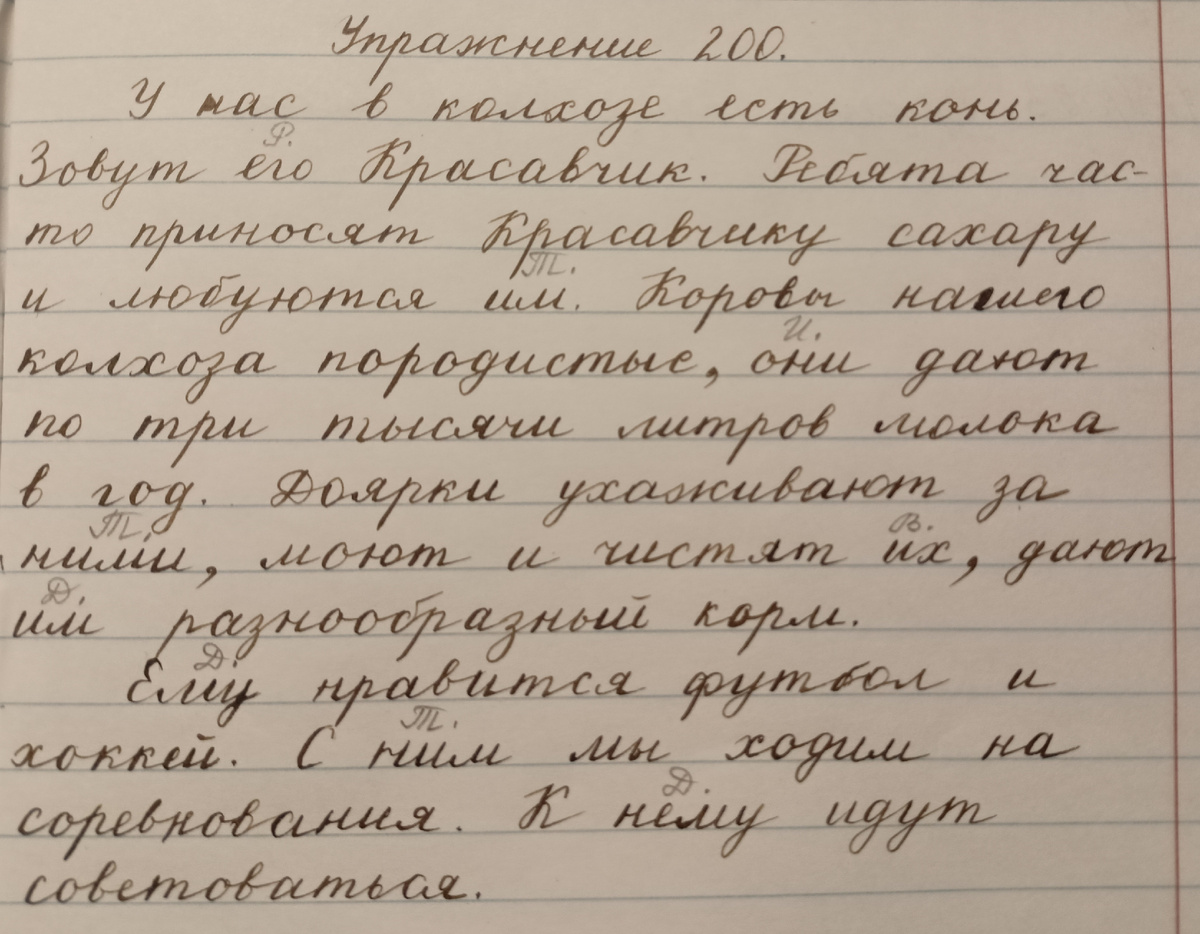 Упражнение 200.
У нас в колхозе есть конь.
Р.
Зовут его Красавчик. Ребята час-
то приносят Красавчику сахару
Т.
и любуются им. Коровы нашего
И.
колхоза породистые, они дают
по три тысячи литров молока
в год. Доярки ухаживают за
Т. В.
ними, моют и чистят их, дают
Д.
им разнообразный корм.
Д.
Ему нравится футбол и
Т.
хоккей. С ним мы ходим на
Д.
соревнования. К нему идут
советоваться.